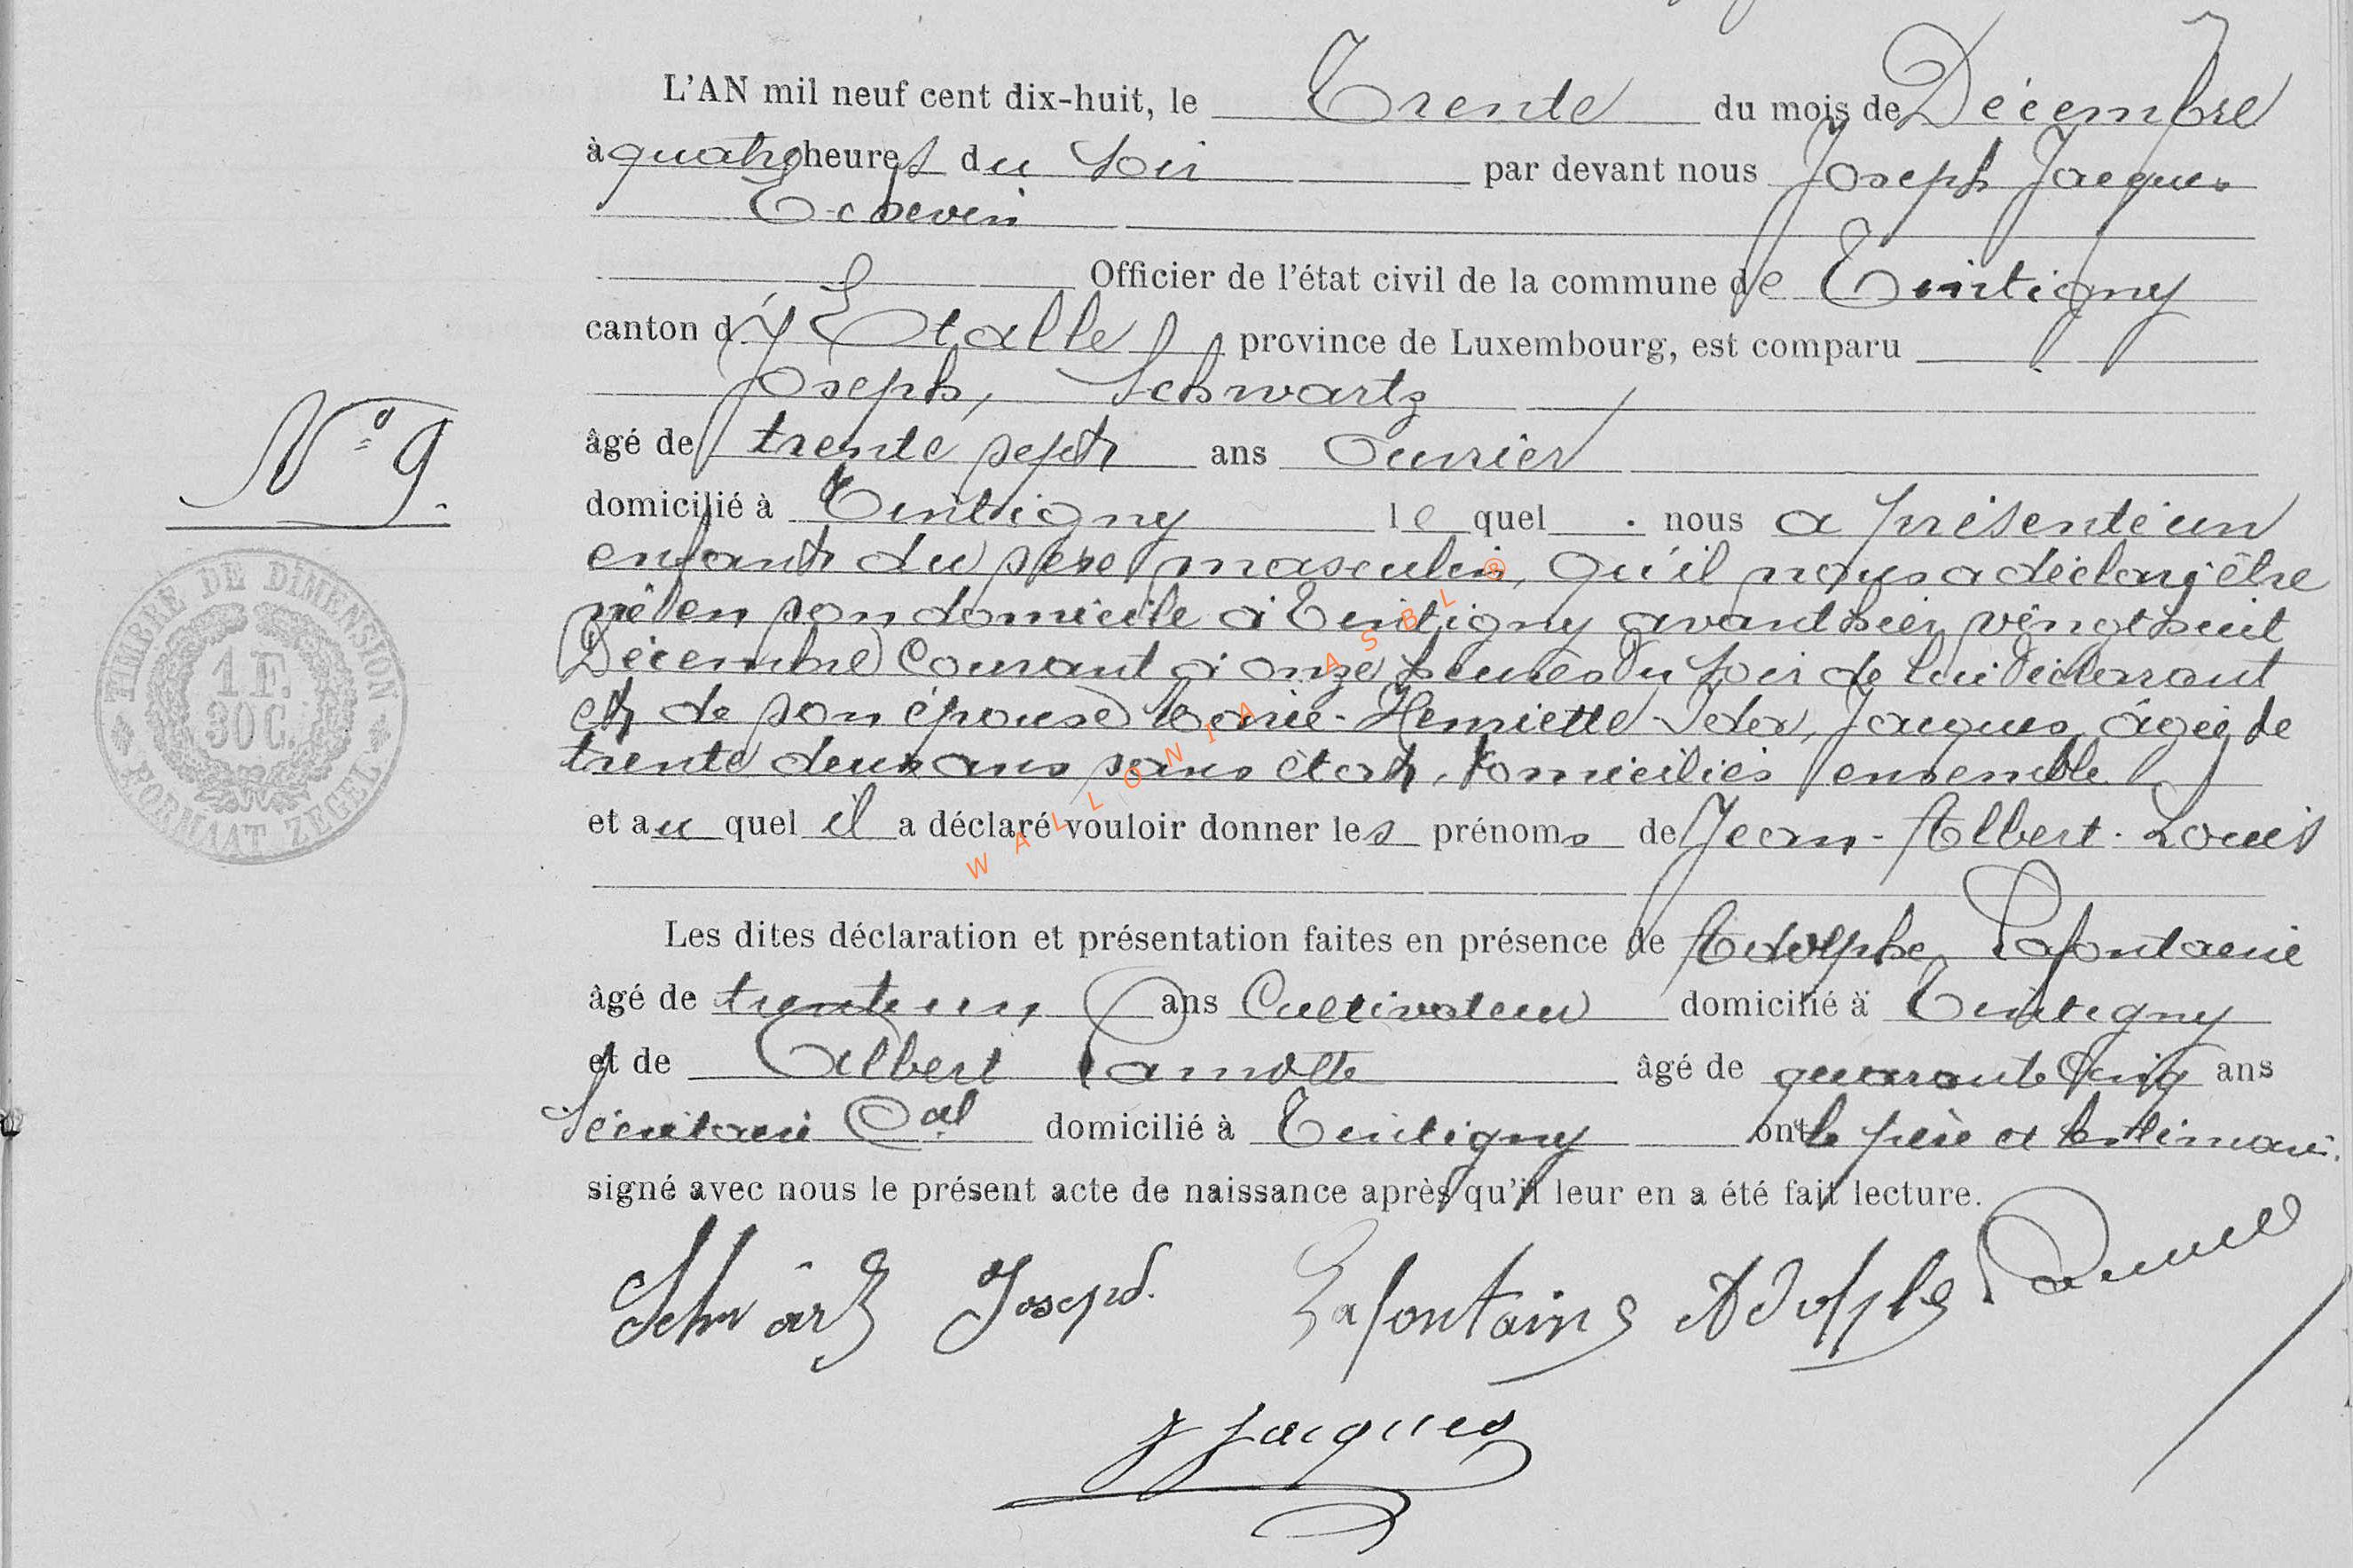 L'AN mil neuf cent dix-huit, le Trente du mois de Décembre
à quatre heures du soir par devant nous Joseph Jacques
Echevin
Officier de l'état civil de la commune de Tintigny
canton d'Etalle province de Luxembourg, est comparu
Joseph, Schwartz
âgé de trente sept ans Ouvrier
N° 9.
domicilié à Tintigny lequel nous a présenté un
enfant du sexe masculin, qu'il nous a déclaré être
né en son domicile à Tintigny avant hier vingt huit
Décembre Courant à onze heures du soir de lui déclarant
et de son épouse Marie-Henriette-Ida, Jacques, âgée de
trente deux ans sans état, domiciliés ensemble
et au quel il a déclaré vouloir donner les prénoms de Jean-Albert-Louis
Les dites déclaration et présentation faites en présence de Adolphe Lafontaine
âgé de trente un, ans Cultivateur domicilié à Tintigny
et de Albert Lamotte âgé de quarante Cinq ans
Secrétaire Cal domicilié à Tintigny ont le père et les
signé avec nous le présent acte de naissance après qu'il leur en a été fait lecture.
Schwartz Joseph. Lafontaine Adolphe
J Jacques
TIMBRE DE DIMENSION
1 F.
30 C.
FORMAAT ZEGEL
WALLONIA ASBL ®